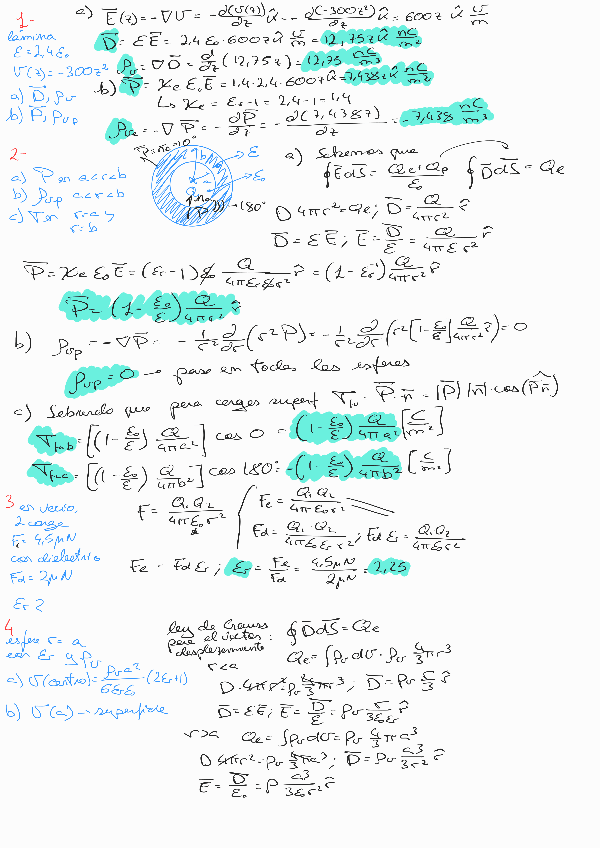 1-
lámina
ε = 2,4 ε₀
V(z) = -300z²
a) D̄, ρᵥ
b) P̄, ρᵥₚ
a) Ē(z) = -∇V = -d(V(z))/dz û = -d(-300z²)/dz û = 600z û V/m
D̄ = εĒ = 2,4 ε₀ 600z û V/m = 12,75z û nC/m²
ρᵥ = ∇D̄ = d/dz (12,75z) = 12,75 nC/m³
b) P̄ = χₑ ε₀ Ē = 1,4·2,4·600z û = 7,438z û nC/m²
↳ χₑ = εᵣ - 1 = 2,4 - 1 = 1,4
= -∇P̄ = -dP̄/dz = -d(7,438z)/dz = -7,438 nC/m³
2-
a) P̄ en a<r<b
b) ρᵥₚ a<r<b
c) σ en r=a y
r=b
b
ε
ε₀
Q
→180°
a) Sabemos que
∮ĒdS̄ = (Qe+Qp)/ε₀ ∮D̄dS̄ = Qe
D 4πr² = Qe ; D̄ = Q/4πr² r̂
D̄ = εĒ ; Ē = D̄/ε = Q/4πεr² r̂
P̄ = χₑ ε₀ Ē = (εᵣ-1) ε₀ Q/4πεᵣε₀r² r̂ = (1-εᵣ⁻¹) Q/4πr² r̂
P̄ = (1 - ε₀/ε) Q/4πr² r̂
b) ρᵥₚ = -∇P̄ = -1/r² ∂/∂r (r² P̄) = -1/r² ∂/∂r (r² [1-ε₀/ε] Q/4πr² r̂) = 0
ρᵥₚ = 0 → pasa en todas las esferas
c) Sabiendo que para cargas superf P̄·n̄ = |P̄| |n̄| · cos(P̄n̄)
= [(1-ε₀/ε) Q/4πa²] cos 0 = (1-ε₀/ε) Q/4πa² [C/m²]
= [(1-ε₀/ε) Q/4πb²] cos 180° = -(1-ε₀/ε) Q/4πb² [C/m²]
3 en vacío,
2 carga
4,5μN
con dieléctrico
Fd = 2μN
εᵣ ?
F = Q₁Q₂/4πε₀r²
Fe = Q₁Q₂/4πε₀r²
Fd = Q₁·Q₂/4πε₀εᵣr² ; Fd εᵣ = Q₁Q₂/4πε₀r²
Fe = Fd εᵣ ; εᵣ = Fe/Fd = 4,5μN/2μN = 2,25
4
esfera r = a
con εᵣ y ρᵥ
a) V(centro) = ρᵥa²/6εᵣε₀ · (2εᵣ+1)
b) V(a) → superficie
ley de Gauss
para el vector :
desplazamiento
∮D̄dS̄ = Qe
r<a
Qe = ∫ρᵥdV = ρᵥ 4/3 πr³
D·4πr² = ρᵥ 4/3 πr³ ; D̄ = ρᵥ r/3 r̂
D̄ = εĒ ; Ē = D̄/ε = ρᵥ r/3ε₀εᵣ r̂
r>a Qe = ∫ρᵥdV = ρᵥ 4/3 πa³
D 4πr² = ρᵥ 4/3 πa³ ; D̄ = ρᵥ a³/3r² r̂
Ē = D̄/ε₀ = ρ a³/3ε₀r² r̂